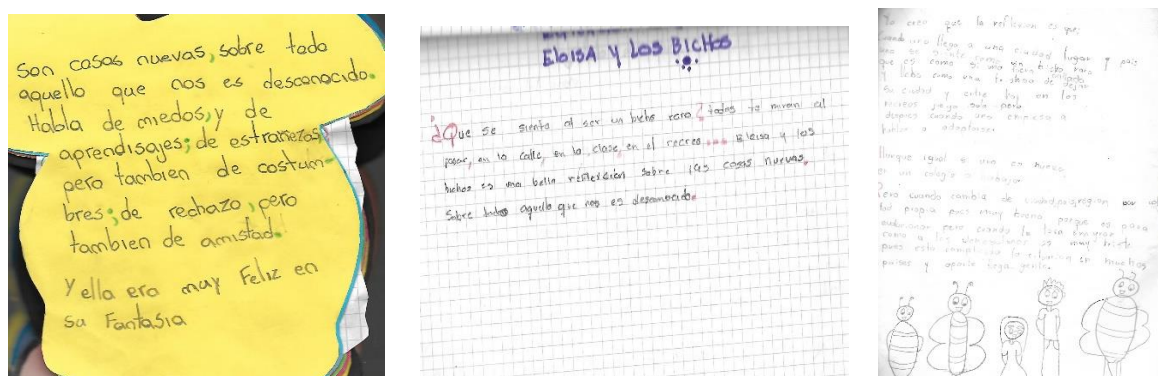 Son cosas nuevas, sobre todo
aquello que nos es desconocido.
Habla de miedos, y de
aprendisajes; de estrañezas
pero tambien de costum-
bres; de rechazo, pero
tambien de amistad.
Y ella era muy Feliz en
su Fantasia
ELOISA Y LOS BICHOS
¿Que se siente al ser un bicho raro? todos te miran al
pasar, en la calle, en la clase, en el recreo... Eloisa y los
bichos es una bella reflexión sobre las cosas nuevas.
Sobre todo aquello que nos es desconocido.
Yo creo que la reflexion es que;
cuando uno llega a una ciudad lugar y pais
uno se siente como un bicho raro
que es como si uno fuera
y debe como una persona de dejar
su ciudad y entre hay en los
recreos juega solo pero
despues cuando uno empieza a
hablar a adaptarse.
Aunque igual si uno es nuevo
en un colegio o trabajo.
Pero cuando cambia de ciudad, pais, region por
propia pues muy buena porque es para
pero cuando le toca emigrar
como a los venezolanos es muy triste
pues esta complicada la situacion en muchos
paises y aparte llega gente.